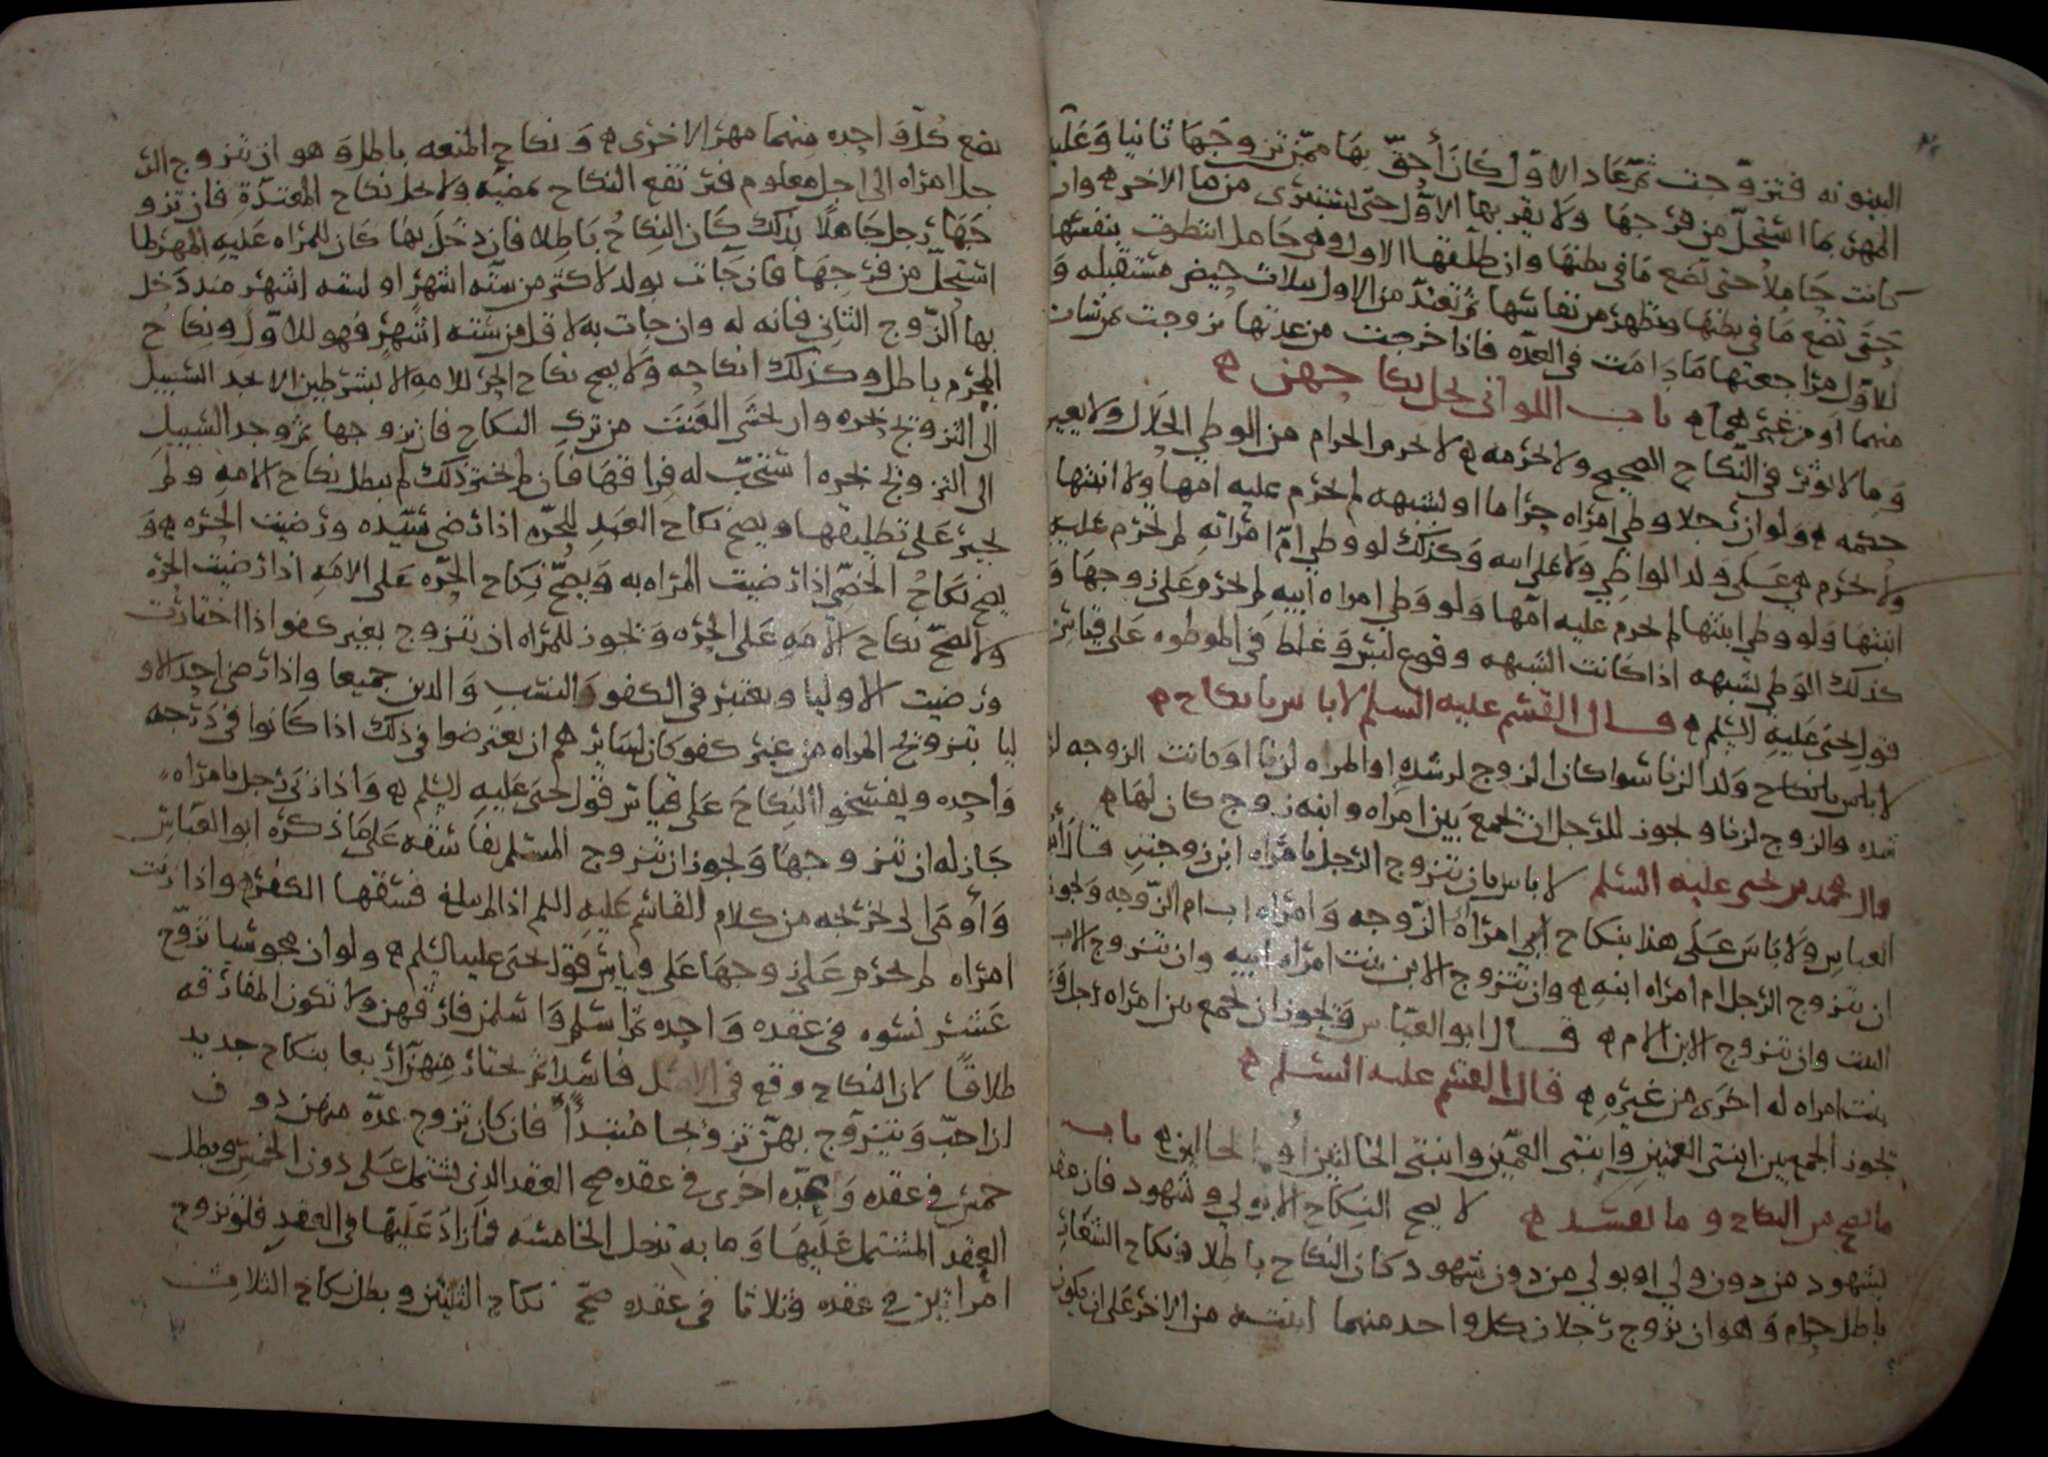 البينونه فتزوّجت ثم عاد الاوّل كان أحقّ بها ممّن تزوجها ثانيا وعليه
المهر بما استحلّ من فرجها ولا يقربها الاوّل حتى يستبرى من ما الاخر ه وان
كانت حاملا حتى تضع ما فى بطنها وان طلّقها الاول وهى حامل انتظرت بنفسها
حتى تضع ما في بطنها وتطهر من نفاسها ثم تعتدّ من الاول بثلاث حيض مستقبله و
للاوّل مراجعتها ما دامت في العدّه فاذا خرجت من عدتها تزوجت بمن شات
منهما أو من غيرهما ه باب اللواتى يحل نكاحهن ه
وما لا يؤثر فى النكاح الصحيح ولا يحرمه ه لا يحرم الحرام من الوطي الحلال ولا يغير
حكمه ه ولو ان رجلا وطي امراه حراما او لشبهه لم يحرم عليه امها ولا ابنتها
ولا يحرم هى على ولد الواطي ولا على ابيه وكذلك لو وطي امّ امراته لم يحرم عليه
ابنتها ولو وطي ابنتها لم يحرم عليه امّها ولو وطي امراه ابيه لم يحرم على زوجها و
كذلك الوطي لشبهه اذا كانت الشبهه وقوع لبس وغلط في الموطوه على قياس
قول يحيى عليه السلم ه قال القسم عليه السلم لا باس بانكاح ه
لا باس بانكاح ولد الزنا سوا كان الزوج لرشده او المراه لزنا او كانت الزوجه لر
شده والزوج لزنا ويجوز للرجل ان يجمع بين امراه وابنه زوج كان لها ه
قال محمد بن يحيى عليه السلم لا باس بان يتزوج الرجل بامراه ابن زوجته قال أبو
العباس ولا باس على هذا بنكاح امراه اب الزوجه وامراه اب ام الزوجه ويجوز
ان يتزوج الرجل ام امراه ابنه ه وان يتزوج الابن بنت امراه ابيه وان يتزوج الاب
البنت وان يتزوج الابن الام ه قال ابو العبّاس ويجوز ان يجمع بين امراه رجل و
بنت امراه له اخرى من غيره ه قال القسم عليه السلم ه
يجوز الجمع بين ابنتى العمين وابنتى العمّين وابنتى الخالتين أو الخالين ه باب
ما يصح من النكاح وما يفسد ه لا يصح النكاح الا بولي وشهود فان عقد
بشهود من دون ولي او بولي من دون شهود كان النكاح باطلا ونكاح الشغار
باطل حرام وهو ان يزوج رجلان كل واحد منهما ابنته من الاخر على ان يكون
بضع كلّ واحده منهما مهر الاخرى ه ونكاح المتعه باطل وهو ان يتزوج الر
جل امراه الى اجل معلوم فيرتفع النكاح بمضيه ولا يحل نكاح المعتدّة فان تزو
جها رجل جاهلا بذلك كان النكاح باطلا فان دخل بها كان للمراه عليه المهر بما
استحلّ من فرجها فان جات بولد لاكثر من ستّه اشهر او لسته اشهر منذ دخل
بها الزّوج الثانى فانه له وان جات به لاقل من ستّه اشهر فهو للاوّل ونكاح
المحرم باطل وكذلك انكاحه ولا يصح نكاح الحر للامه الا بشرطين الا يجد السبيل
الى التزويج بحره وان يخشى العنت من ترك النكاح فان تزوجها ثم وجد السبيل
الى التزويج بحره استحبّ له فراقها فان لم يختر ذلك لم يبطل نكاح الامه ولم
يجبر على تطليقها ويصح نكاح العبد للحرّه اذا رضي سيّده ورضيت الحرّه ه و
يصح نكاح الخصّي اذا رضيت المراه به ويصحّ نكاح الحرّه على الامه اذا رضيت الحرّه
ولا يصحّ نكاح الامه على الحرّه ويجوز للمراه ان تتزوج بغير كفو اذا اختارت
ورضيت الاوليا ويعتبر فى الكفو النسب والدين جميعا واذا رضى احد الاو
ليا بتزويج المراه من غير كفو كان لسائرهم ان يعترضوا فى ذلك اذا كانوا فى درجه
واحده ويفسخوا النكاح على قياس قول يحيى عليه السلم ه واذا زنى رجل بامراه
جاز له ان يتزوجها ويجوز ان يتزوج المسلم بفاسقه على ما ذكره ابو العباس
وأومى الى تخريجه من كلام القاسم عليه السلم اذا لم يبلغ فسقها الكفر ه واذا زنت
امراه لم يحرم على زوجها على قياس قول يحيى عليه السلم ه ولو ان مجوسيا تزوّج
عشر نسوه فى عقده واحده ثم اسلم واسلمن فارقهن ولا تكون المفارقه
طلاقا لان النكاح وقع فى الاصل فاسدا ثم يختار منهنّ اربعا بنكاح جديد
ان احبّ ويتزوّج بهنّ تزويجا مبتدأ فان كان تزوج عدّه منهن دون
خمس فى عقده وعدّه اخرى في عقده صح العقد الذى يشتمل على دون الخمس ويبطل
العقد المشتمل عليها وما به تدخل الخامسه فما زاد عليها فى العقد فلو تزوج
امراتين في عقده وثلاثا فى عقده صحّ نكاح الثنتين وبطل نكاح الثلاث